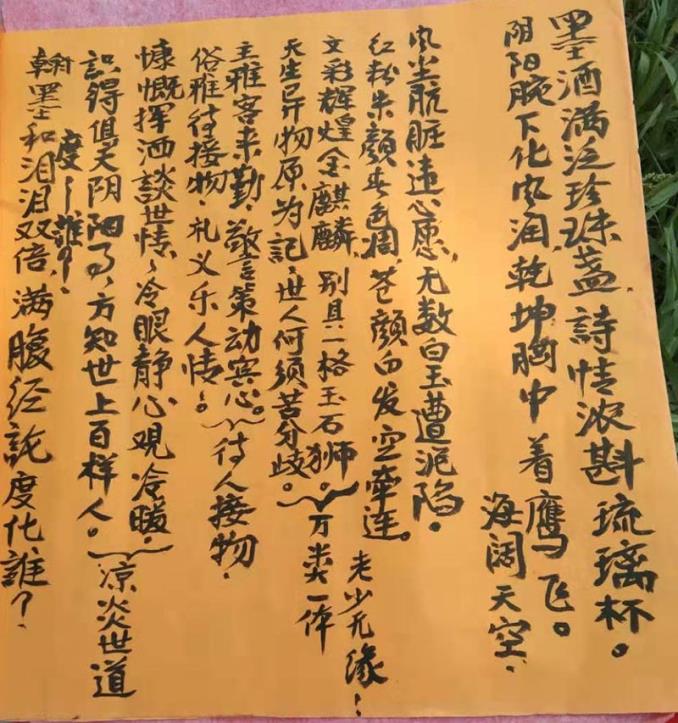 墨酒满泛珍珠盏,詩情浓斟琉璃杯。
阴阳腕下化风润,乾坤胸中着鹰飞。
海阔天空、
风尘肮脏违心愿,无数白玉遭泥陷。
红粉朱颜春色凋,苍颜白发空牵连。
老少无缘!
文彩辉煌金麒麟,别具一格玉石狮。
天生已开物原为記、世人何须苦分歧。
万类一体
主雅客来勤、警言策动宾心。
俗雅待接物、礼义乐人情。
待人接物、
慷慨挥洒談世情、冷眼静心观冷暖、
識得俱天阴阳了,方知世上百样人。
凉炎世道
度~誰?
翰墨和泪泪双倍,满腹经託度化誰?